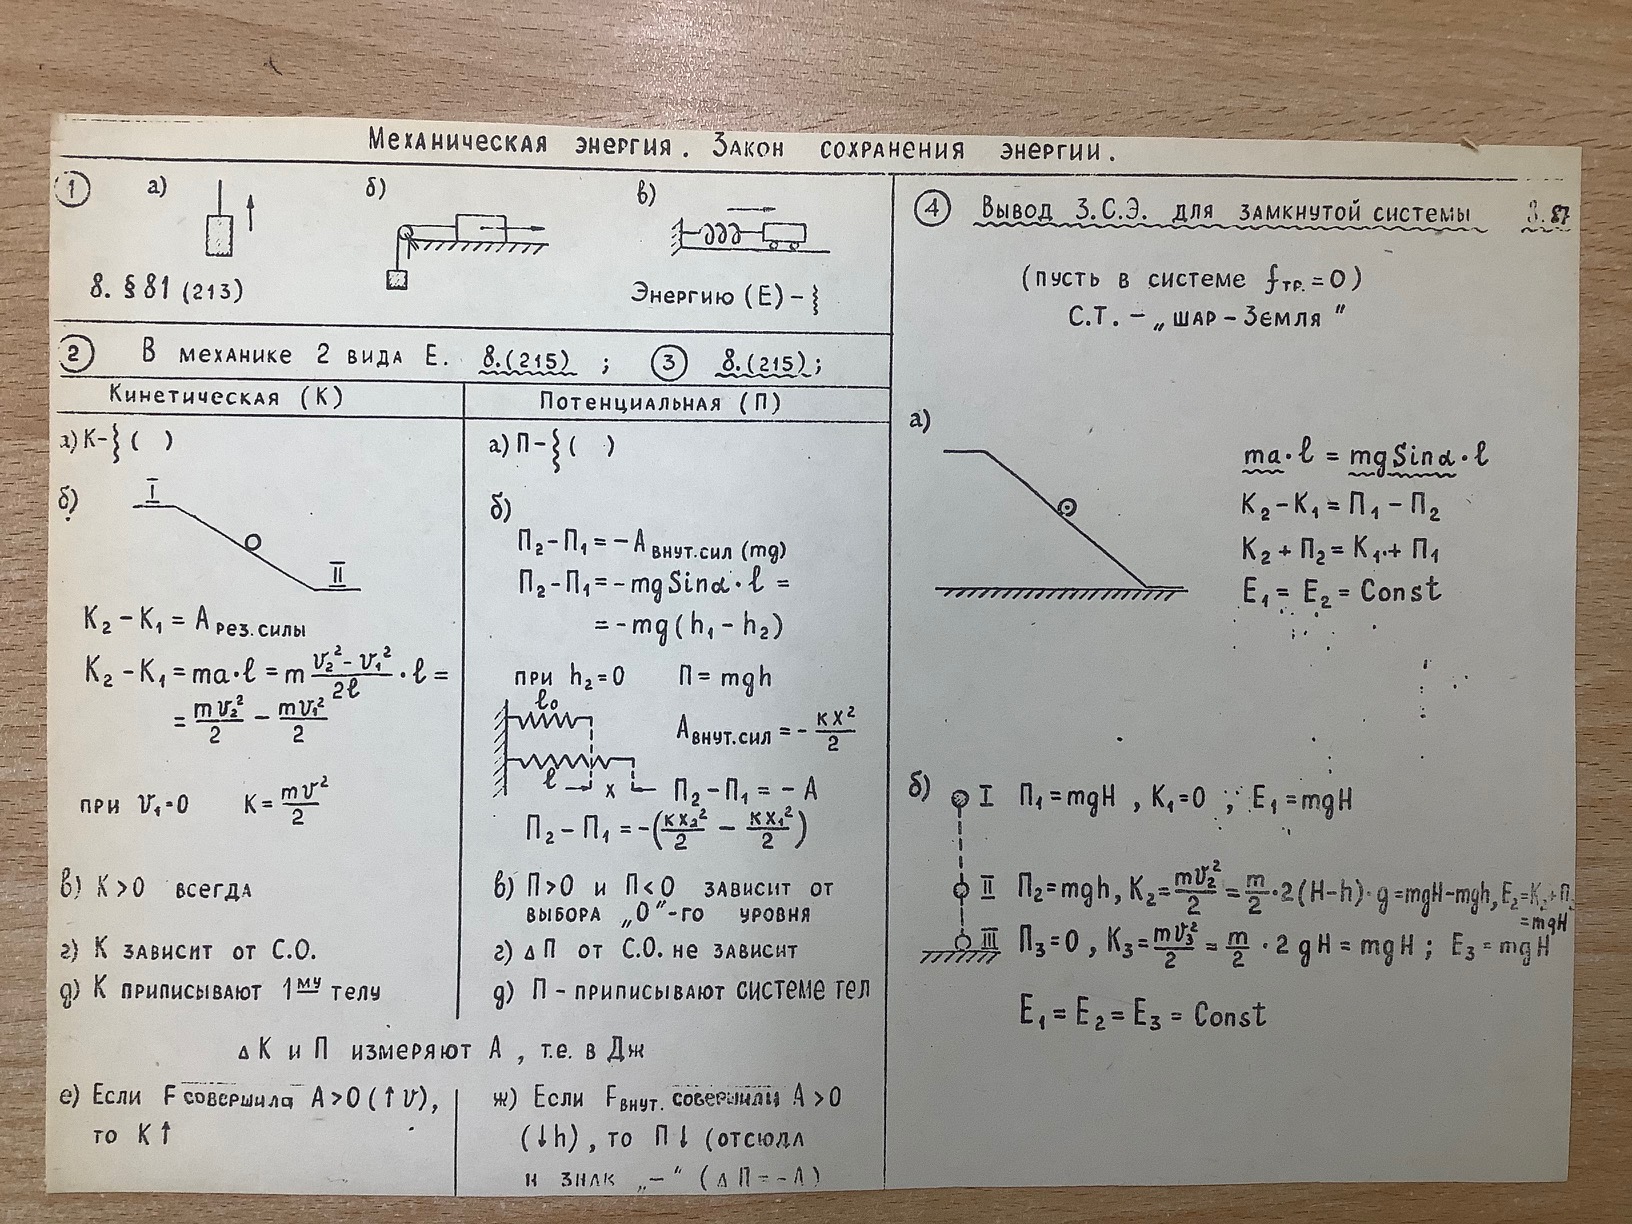 Механическая энергия. Закон сохранения энергии.
1 а) б) в)
8. § 81 (213) Энергию (Е) –
2 В механике 2 вида Е. 8.(215) ; 3 8.(215);
Кинетическая (К)
а) К – ( )
б)
I
II
К₂ – К₁ = А рез.силы
К₂ – К₁ = ma·l = m (v₂² – v₁²)/2l · l =
= mv₂²/2 – mv₁²/2
при v₁=0 К = mv²/2
в) К > 0 всегда
г) К зависит от С.О.
д) К приписывают 1му телу
Потенциальная (П)
а) П – ( )
б)
П₂ – П₁ = – А внут.сил (mg)
П₂ – П₁ = – mg Sinα · l =
= – mg (h₁ – h₂)
при h₂=0 П = mgh
l₀
А внут.сил = – кx²/2
l x П₂ – П₁ = – А
П₂ – П₁ = –(кx₂²/2 – кx₁²/2)
в) П>0 и П<0 зависит от
выбора „0"-го уровня
г) ΔП от С.О. не зависит
д) П – приписывают системе тел
ΔК и П измеряют А , т.е. в Дж
е) Если F совершила А>0 (↑v),
то К↑
ж) Если Fвнут. совершили А>0
(↓h), то П↓ (отсюда
и знак „–" (ΔП = –А)
4 Вывод З.С.Э. для замкнутой системы 3.87
(пусть в системе fтр.=0)
С.Т. – „шар – Земля"
а)
ma·l = mg Sinα·l
К₂ – К₁ = П₁ – П₂
К₂ + П₂ = К₁ + П₁
Е₁ = Е₂ = Const
б) I П₁ = mgH , К₁=0 ; Е₁ = mgH
II П₂=mgh, К₂ = mv₂²/2 = m/2 · 2(H–h)·g = mgH–mgh, Е₂=К₂+П₂
=mgH
III П₃=0 , К₃ = mv₃²/2 = m/2 · 2gH = mgH ; Е₃ = mgH
Е₁ = Е₂ = Е₃ = Const